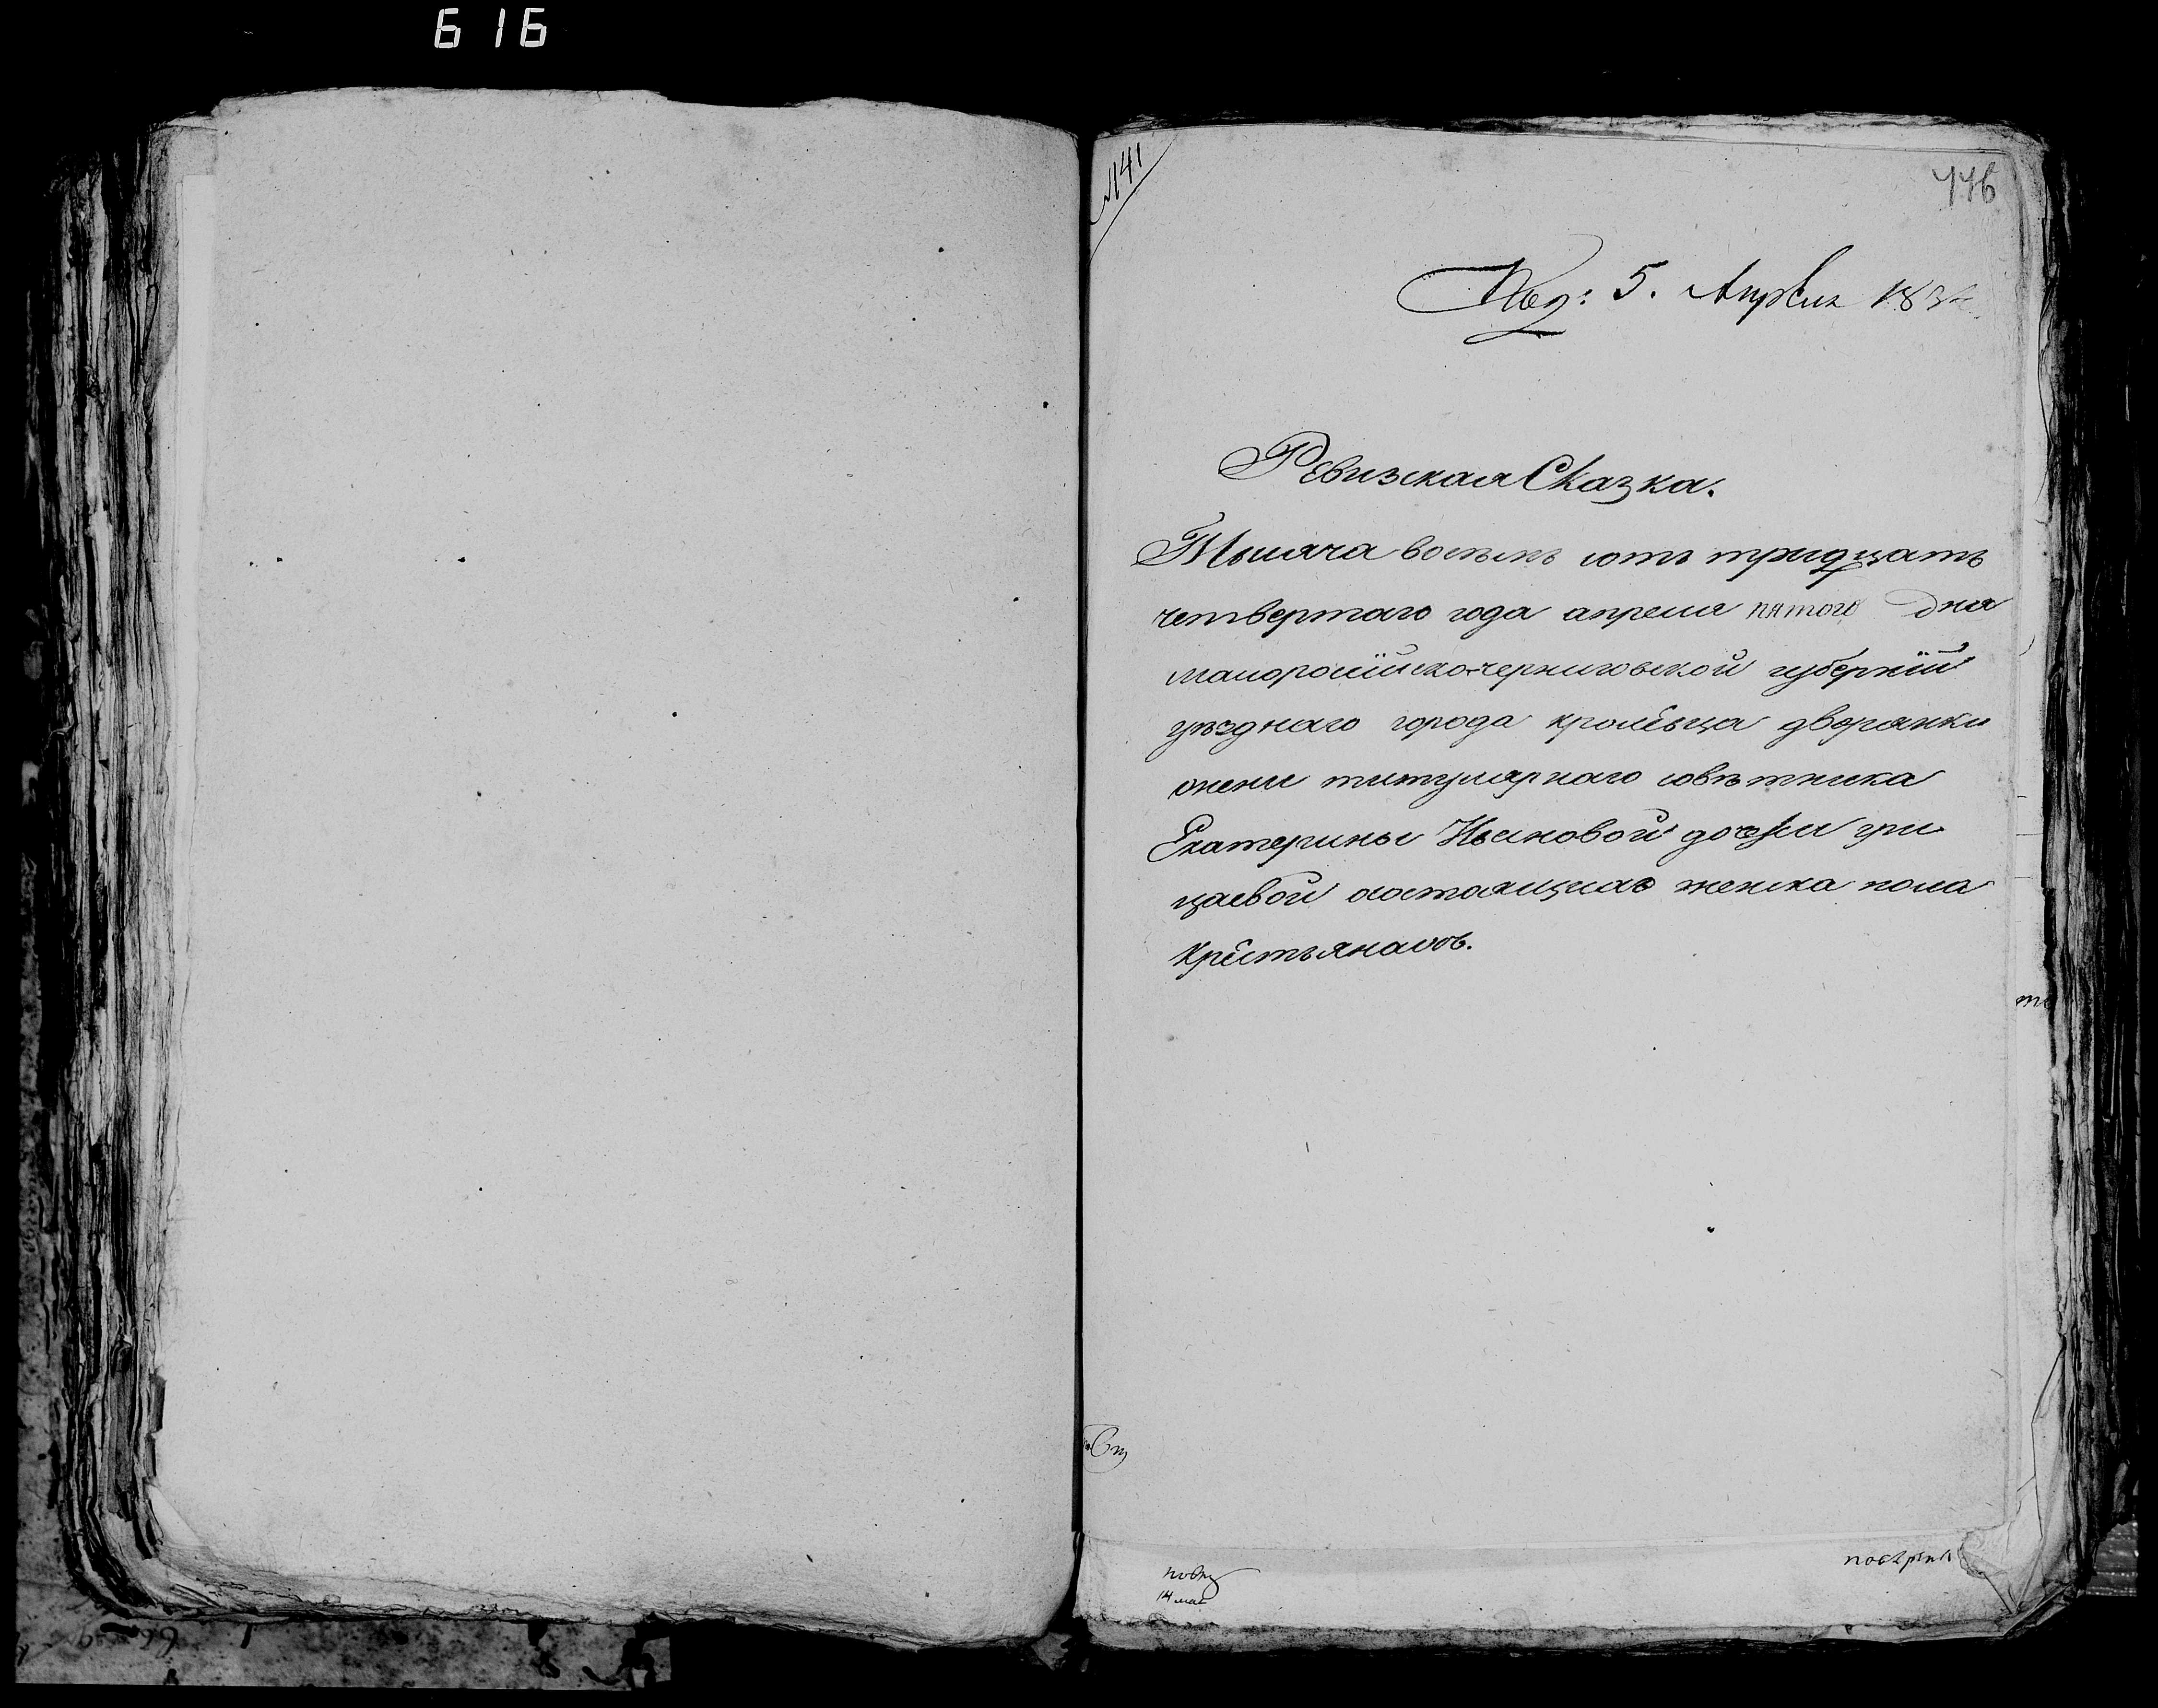 616
№ 141
776
Под: 5. Апрѣля 183
Ревизская Сказка.
Тысяча восемь сотъ тридцать
четвертаго года апреля пятого дня
малоросійскочерниговской губерніи
уѣзднаго города кролевца дворянки
жены титулярнаго совѣтника
Екатерины Ивановой дочери гри
цаевой состоящихъ женска пола
крестьянахъ.
14 мая